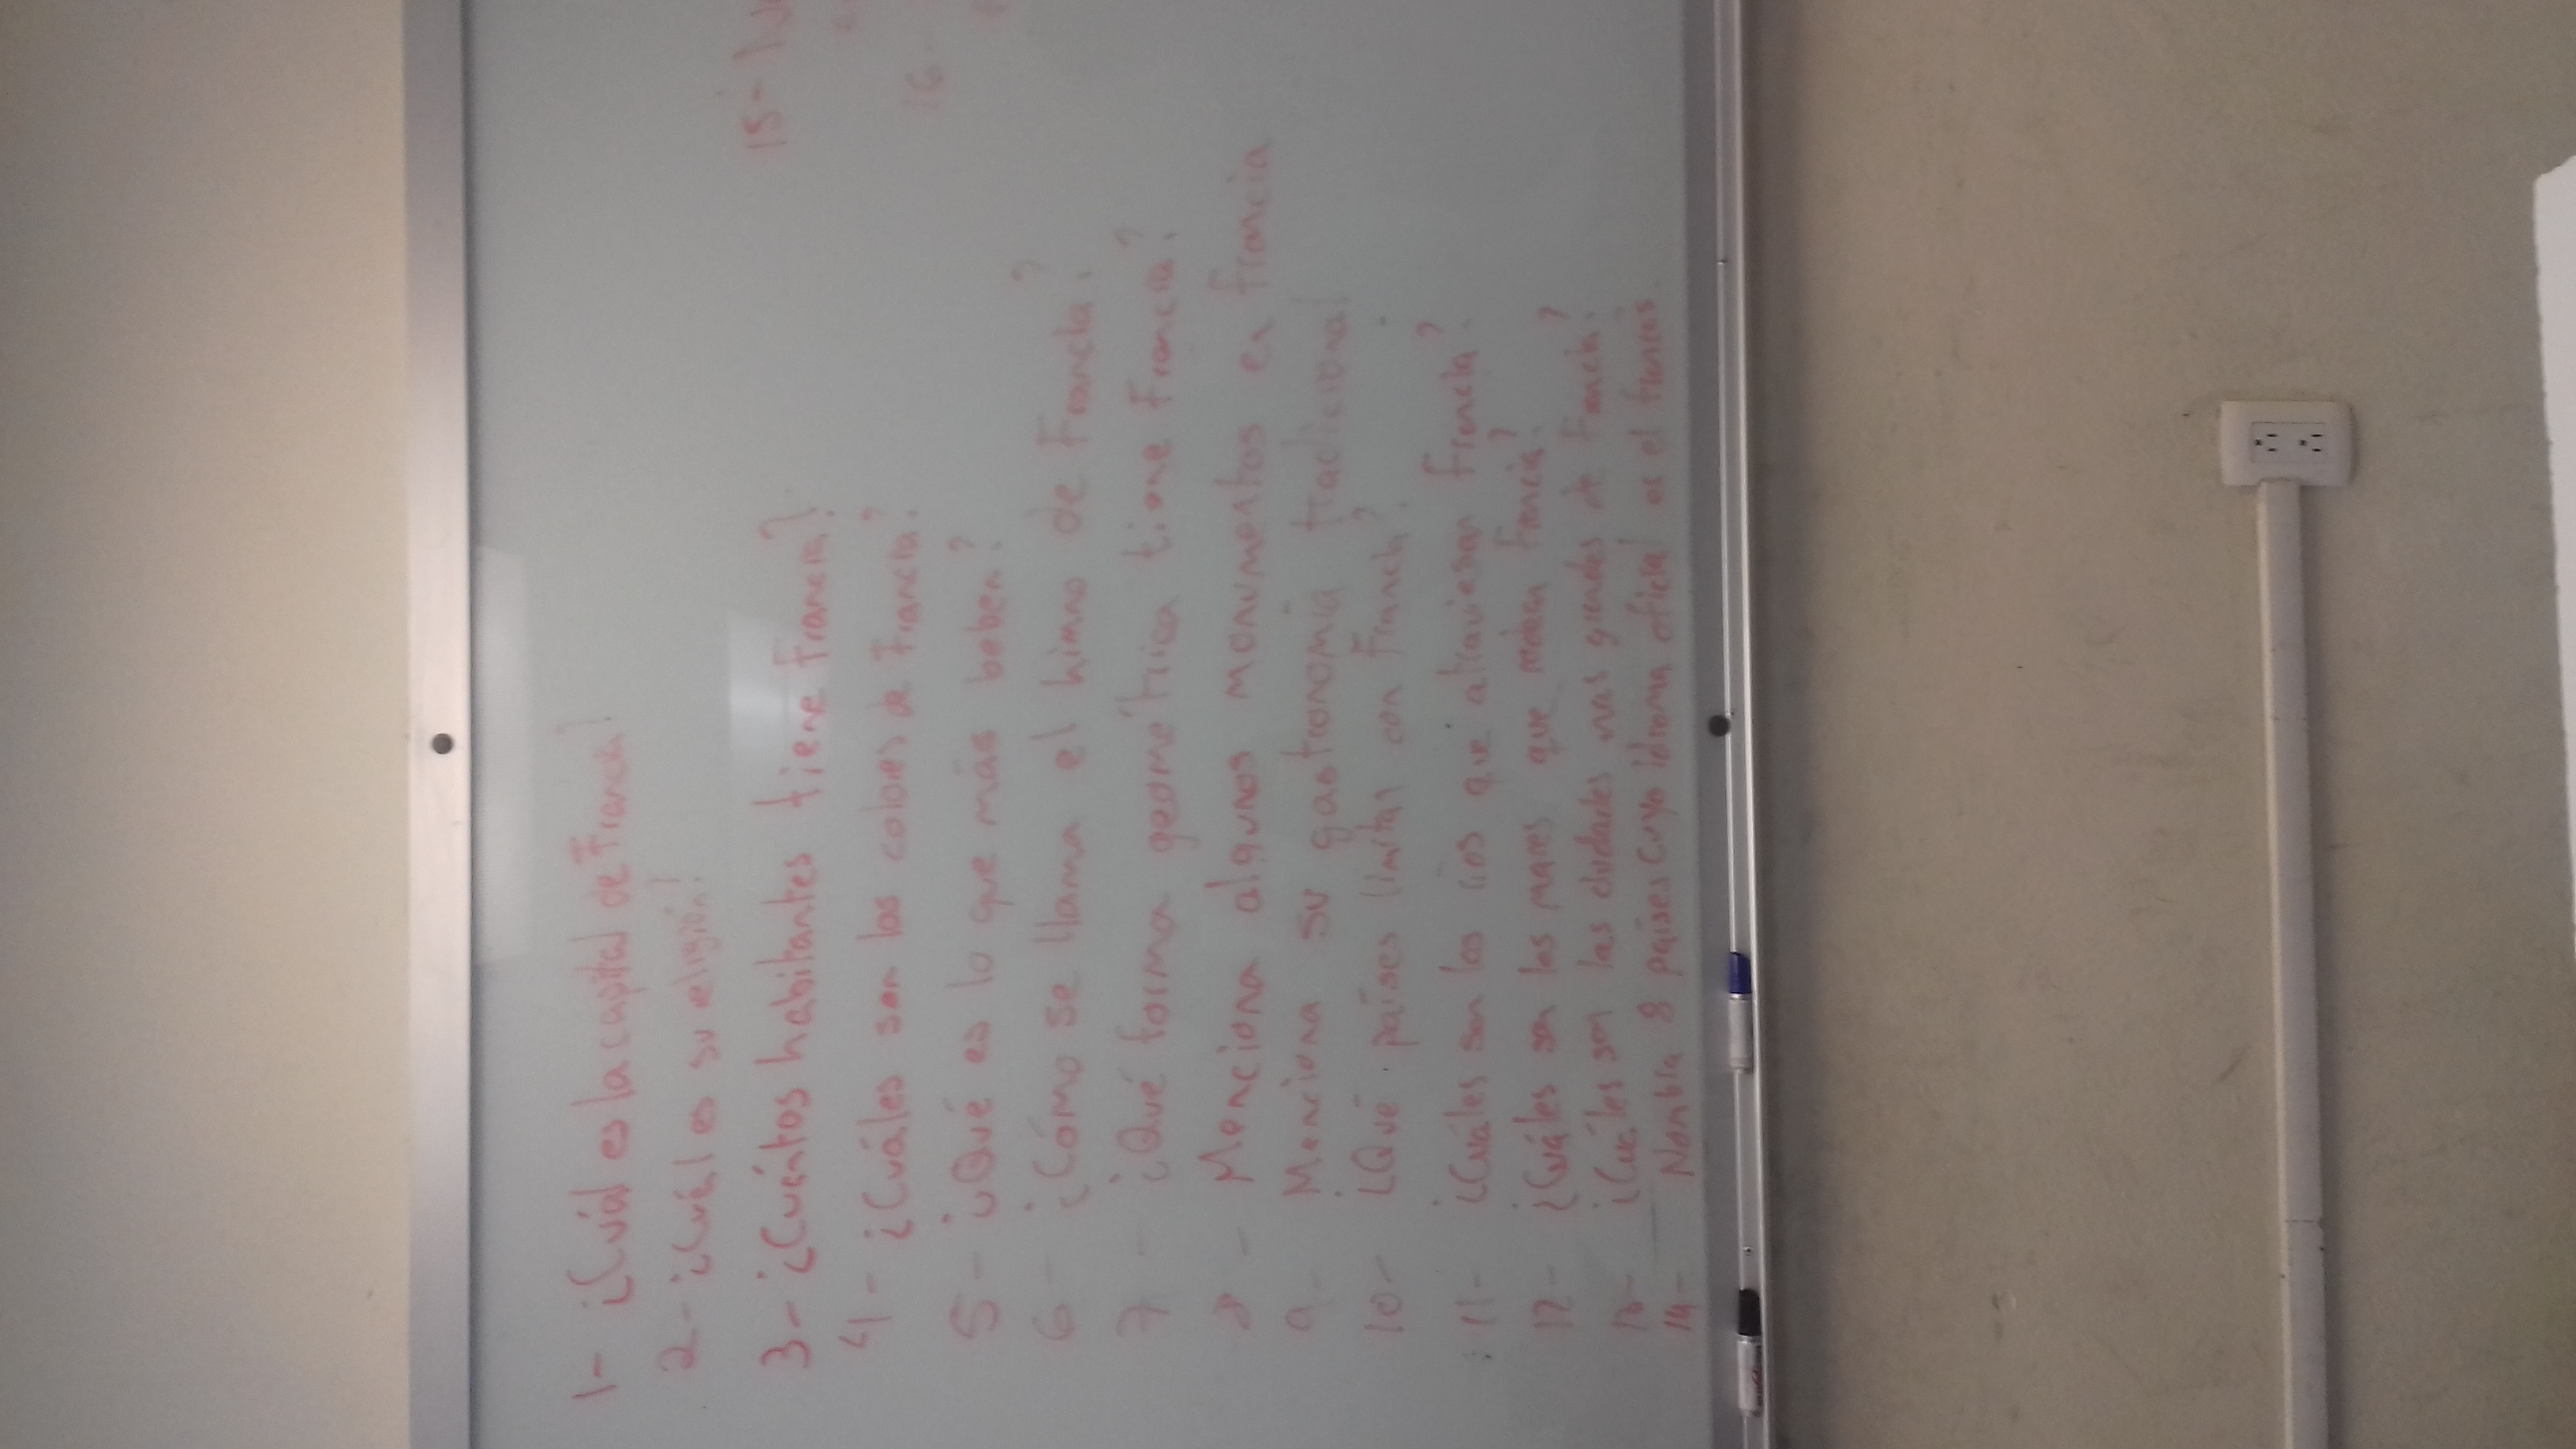 1- ¿Cuál es la capital de Francia?
2- ¿Cuál es su religión?
3- ¿Cuántos habitantes tiene Francia?
4- ¿Cuáles son los colores de Francia?
5- ¿Qué es lo que más beben?
6- ¿Cómo se llama el himno de Francia?
7- ¿Qué forma geométrica tiene Francia?
8- Menciona algunos monumentos en Francia
9- Menciona su gastronomía tradicional
10- ¿Qué países limitan con Francia?
11- ¿Cuáles son los ríos que atraviesan Francia?
12- ¿Cuáles son los mares que rodean Francia?
13- ¿Cuáles son las ciudades mas grandes de Francia?
14- Nombra 8 países cuyo idioma oficial es el francés
15-
16-